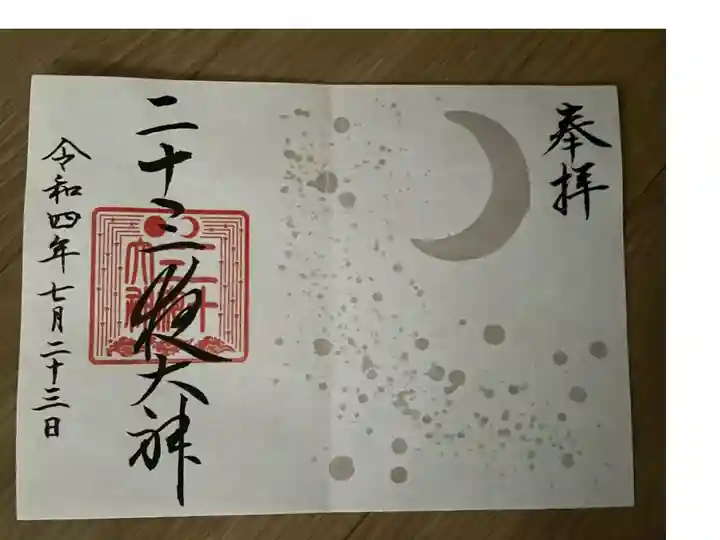 奉拝
二十三夜大神
令和四年七月二十三日